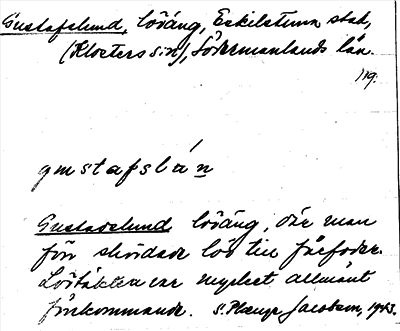 Gustafslund, löväng, Eskilstuna stad,
(Klosters s:n), Södermanlands län.
119.
gustafslán
Gustavslund löväng, där man
förr skördade löv till fårfoder.
Lövtäkten var mycket allmänt
förekommande. S. Jacobson, 1943.